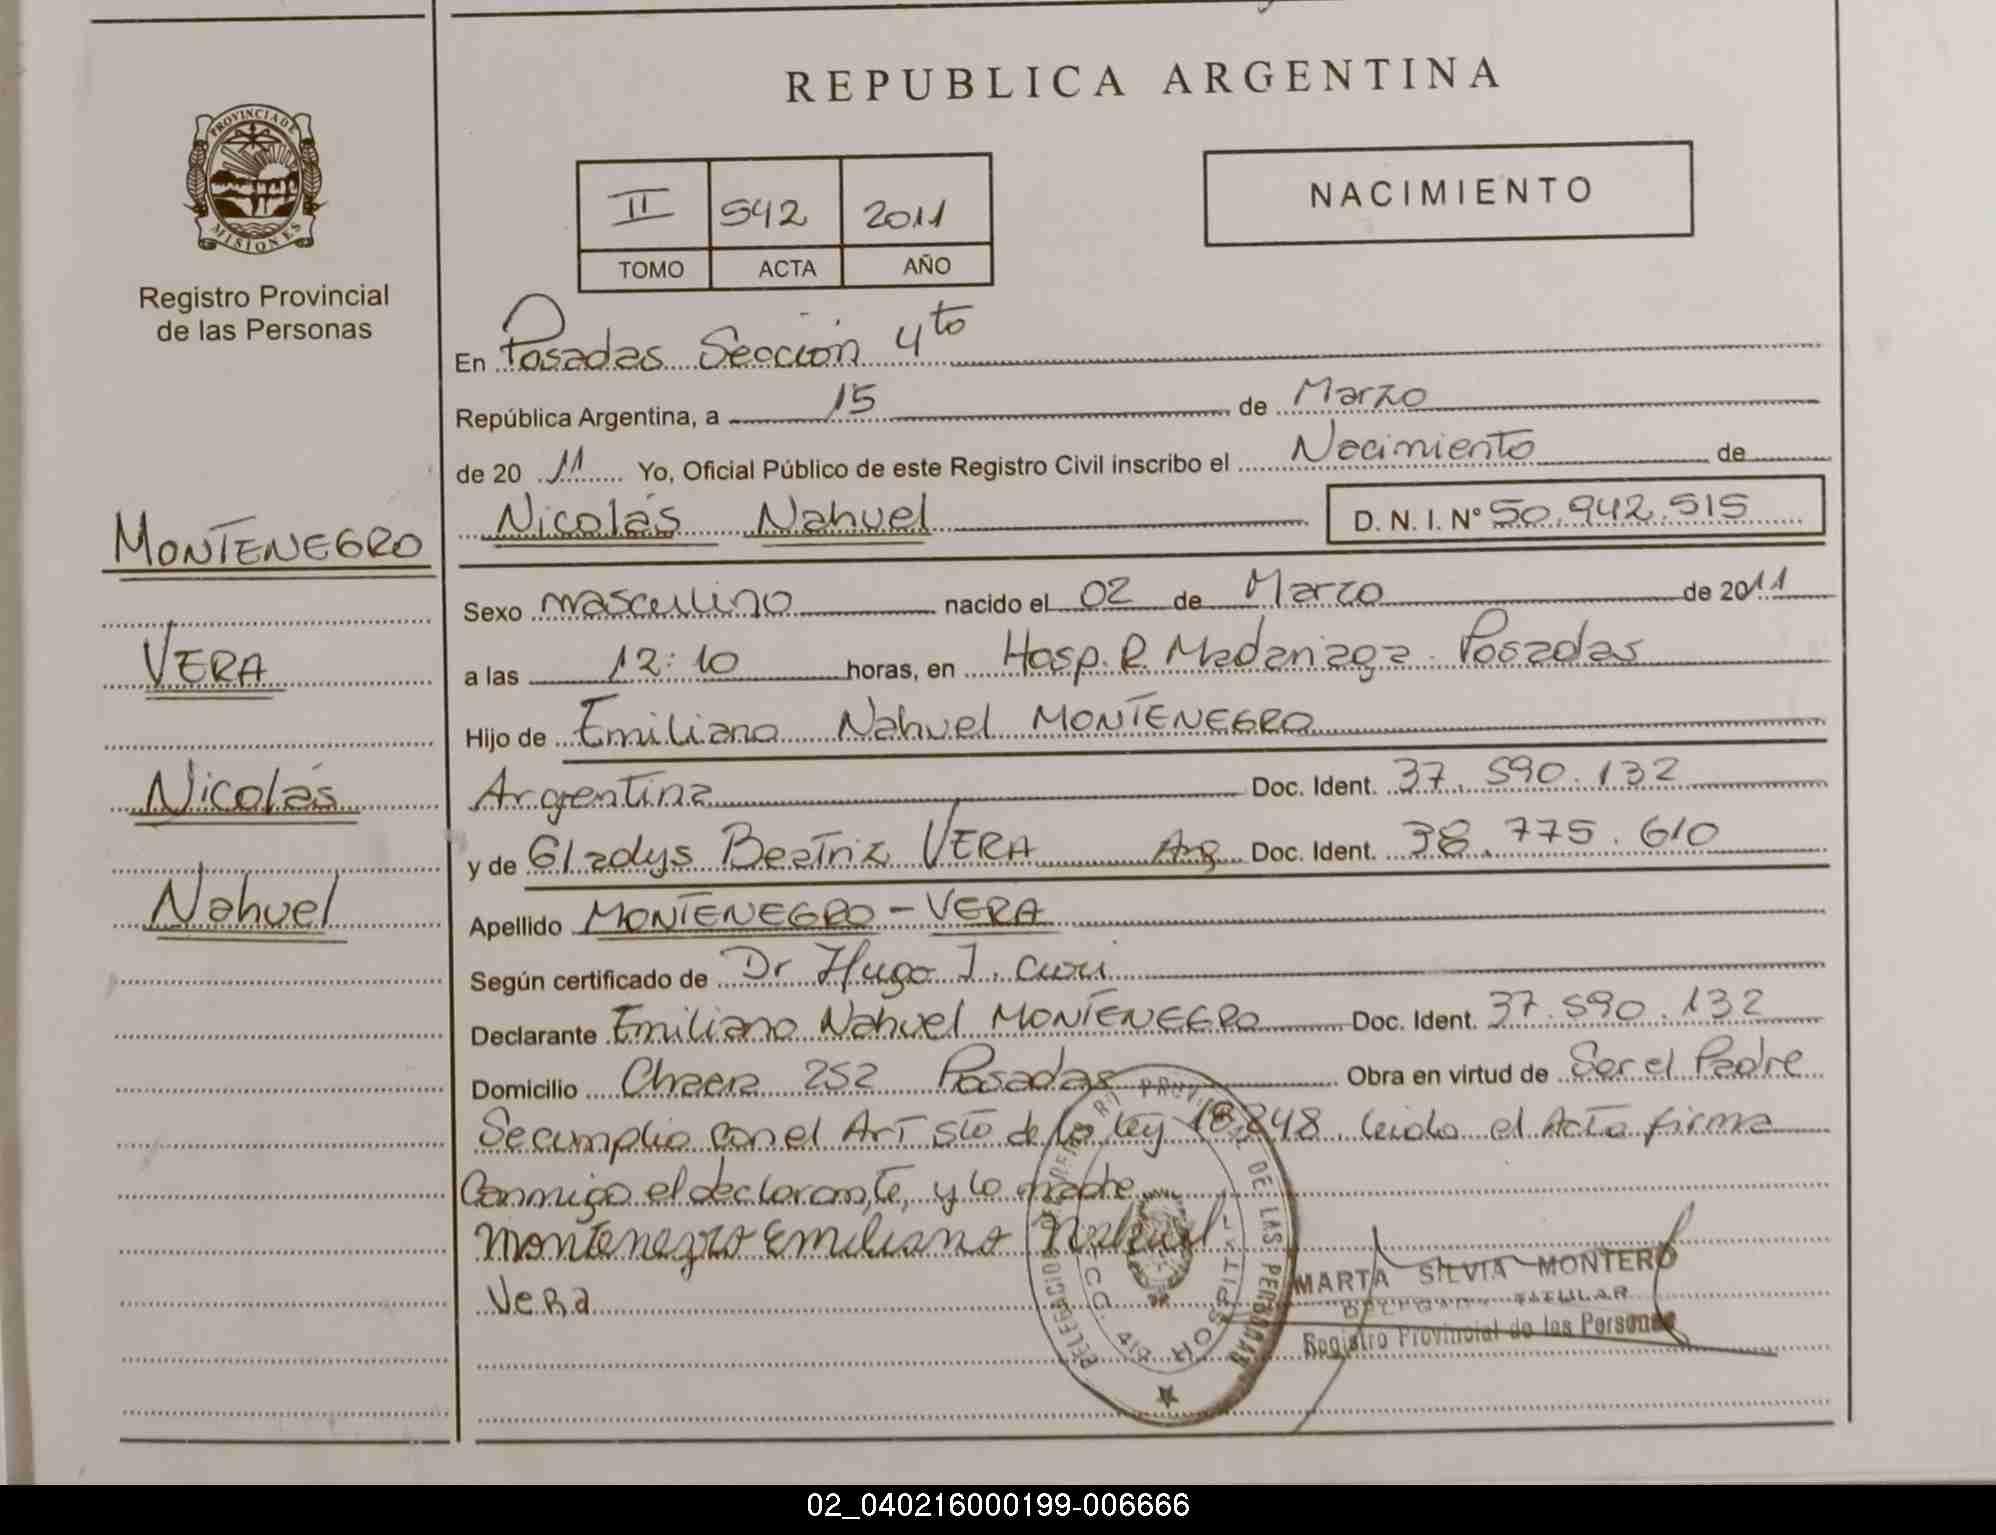 REPUBLICA ARGENTINA
PROVINCIA DE
MISIONES
Registro Provincial
de las Personas
II 542 2011
TOMO ACTA AÑO
NACIMIENTO
MONTENEGRO
VERA
Nicolás
Nahuel
En Posadas Sección 4to
República Argentina, a 15 de Marzo
de 20 11 Yo, Oficial Público de este Registro Civil inscribo el Nacimiento de
Nicolás Nahuel D. N. I. Nº 50.942.515
Sexo masculino nacido el 02 de Marzo de 2011
a las 12:10 horas, en Hosp. R. Madariaga. Posadas
Hijo de Emiliano Nahuel MONTENEGRO
Argentina Doc. Ident. 37.590.132
y de Gladys Beatriz VERA Arg Doc. Ident. 38.775.610
Apellido MONTENEGRO - VERA
Según certificado de Dr Hugo J. Curi
Declarante Emiliano Nahuel MONTENEGRO Doc. Ident. 37.590.132
Domicilio 252 Posadas Obra en virtud de Ser el Padre
Se cumplio con el Art 5to de la ley 18.248. Leida el Acta firma
Conmigo el declarante, y la madre
Montenegro Emiliano Nahuel
Vera
DE LAS PERSONAS
HOSPITAL
MARTA SILVIA MONTERO
DELEGADA TITULAR
Registro Provincial de las Personas
02_040216000199-006666